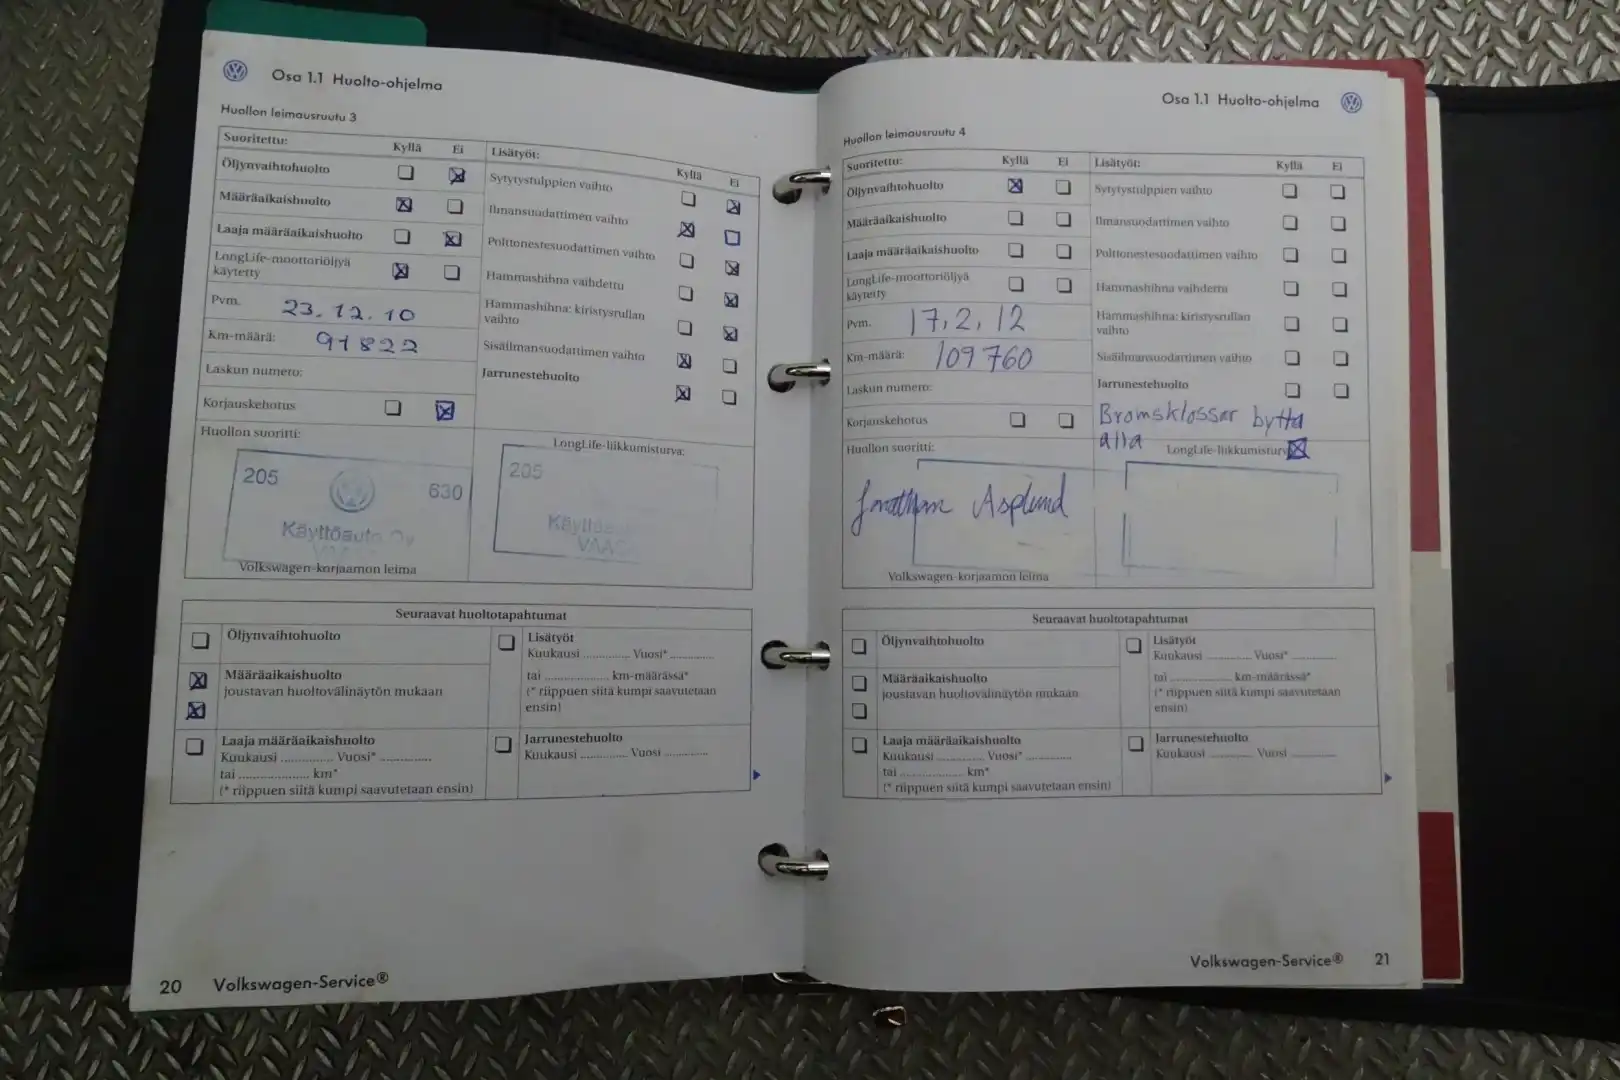 Osa 1.1 Huolto-ohjelma
Huollon leimausruutu 3
Suoritettu: Kyllä Ei
Öljynvaihtohuolto
Määräaikaishuolto
Laaja määräaikaishuolto
LongLife-moottoriöljyä
käytetty
Pvm. 23.12.10
Km-määrä: 91822
Laskun numero:
Korjauskehotus
Huollon suoritti:
205 630
Käyttöauto Oy
Volkswagen-korjaamon leima
Lisätyöt: Kyllä Ei
Sytytystulppien vaihto
Ilmansuodattimen vaihto
Polttonestesuodattimen vaihto
Hammashihna vaihdettu
Hammashihna: kiristysrullan
vaihto
Sisäilmansuodattimen vaihto
Jarrunestehuolto
LongLife-liikkumisturva:
205
Seuraavat huoltotapahtumat
Öljynvaihtohuolto
Määräaikaishuolto
joustavan huoltovälinäytön mukaan
Laaja määräaikaishuolto
Kuukausi .............. Vuosi* ..............
tai ................... km*
(* riippuen siitä kumpi saavutetaan ensin)
Lisätyöt
Kuukausi .............. Vuosi* ..............
tai ................... km-määrässä*
(* riippuen siitä kumpi saavutetaan
ensin)
Jarrunestehuolto
Kuukausi .............. Vuosi ..............
20 Volkswagen-Service®
Osa 1.1 Huolto-ohjelma
Huollon leimausruutu 4
Suoritettu: Kyllä Ei
Öljynvaihtohuolto
Määräaikaishuolto
Laaja määräaikaishuolto
LongLife-moottoriöljyä
käytetty
Pvm. 17,2,12
Km-määrä: 109760
Laskun numero:
Korjauskehotus
Huollon suoritti:
Jonathan Asplund
Volkswagen-korjaamon leima
Lisätyöt: Kyllä Ei
Sytytystulppien vaihto
Ilmansuodattimen vaihto
Polttonestesuodattimen vaihto
Hammashihna vaihdettu
Hammashihna: kiristysrullan
vaihto
Sisäilmansuodattimen vaihto
Jarrunestehuolto
Bromsklossar bytta
alla
LongLife-liikkumisturv
Seuraavat huoltotapahtumat
Öljynvaihtohuolto
Määräaikaishuolto
joustavan huoltovälinäytön mukaan
Laaja määräaikaishuolto
Kuukausi .............. Vuosi* ..............
tai ................... km*
(* riippuen siitä kumpi saavutetaan ensin)
Lisätyöt
Kuukausi .............. Vuosi* ..............
tai ................... km-määrässä*
(* riippuen siitä kumpi saavutetaan
ensin)
Jarrunestehuolto
Kuukausi .............. Vuosi ..............
Volkswagen-Service® 21